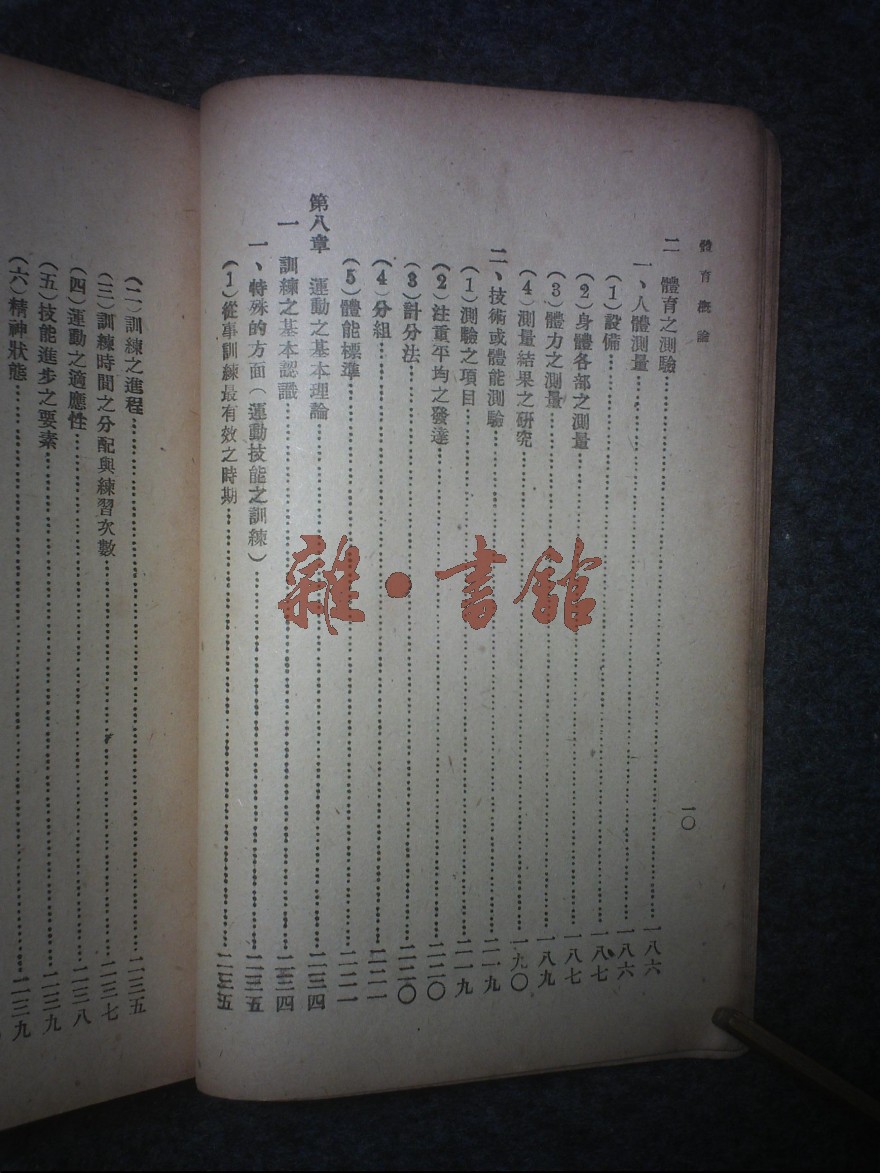 體育概論
一〇
二　體育之測驗……一八六
一、人體測量……一八六
（1）設備……一八七
（2）身體各部之測量……一八七
（3）體力之測量……一八九
（4）測量結果之研究……一九〇
二、技術或體能測驗……二一九
（1）測驗之項目……二一九
（2）注重平均之發達……二二〇
（3）計分法……二二〇
（4）分組……二二一
（5）體能標準……二二一
第八章　運動之基本理論……二三四
一　訓練之基本認識……二三四
一、特殊的方面（運動技能之訓練）……二三五
（1）從事訓練最有效之時期……二三五
（二）訓練之進程……二三五
（三）訓練時間之分配與練習次數……二三七
（四）運動之適應性……二三八
（五）技能進步之要素……二三九
（六）精神狀態……二三九
雜·書館